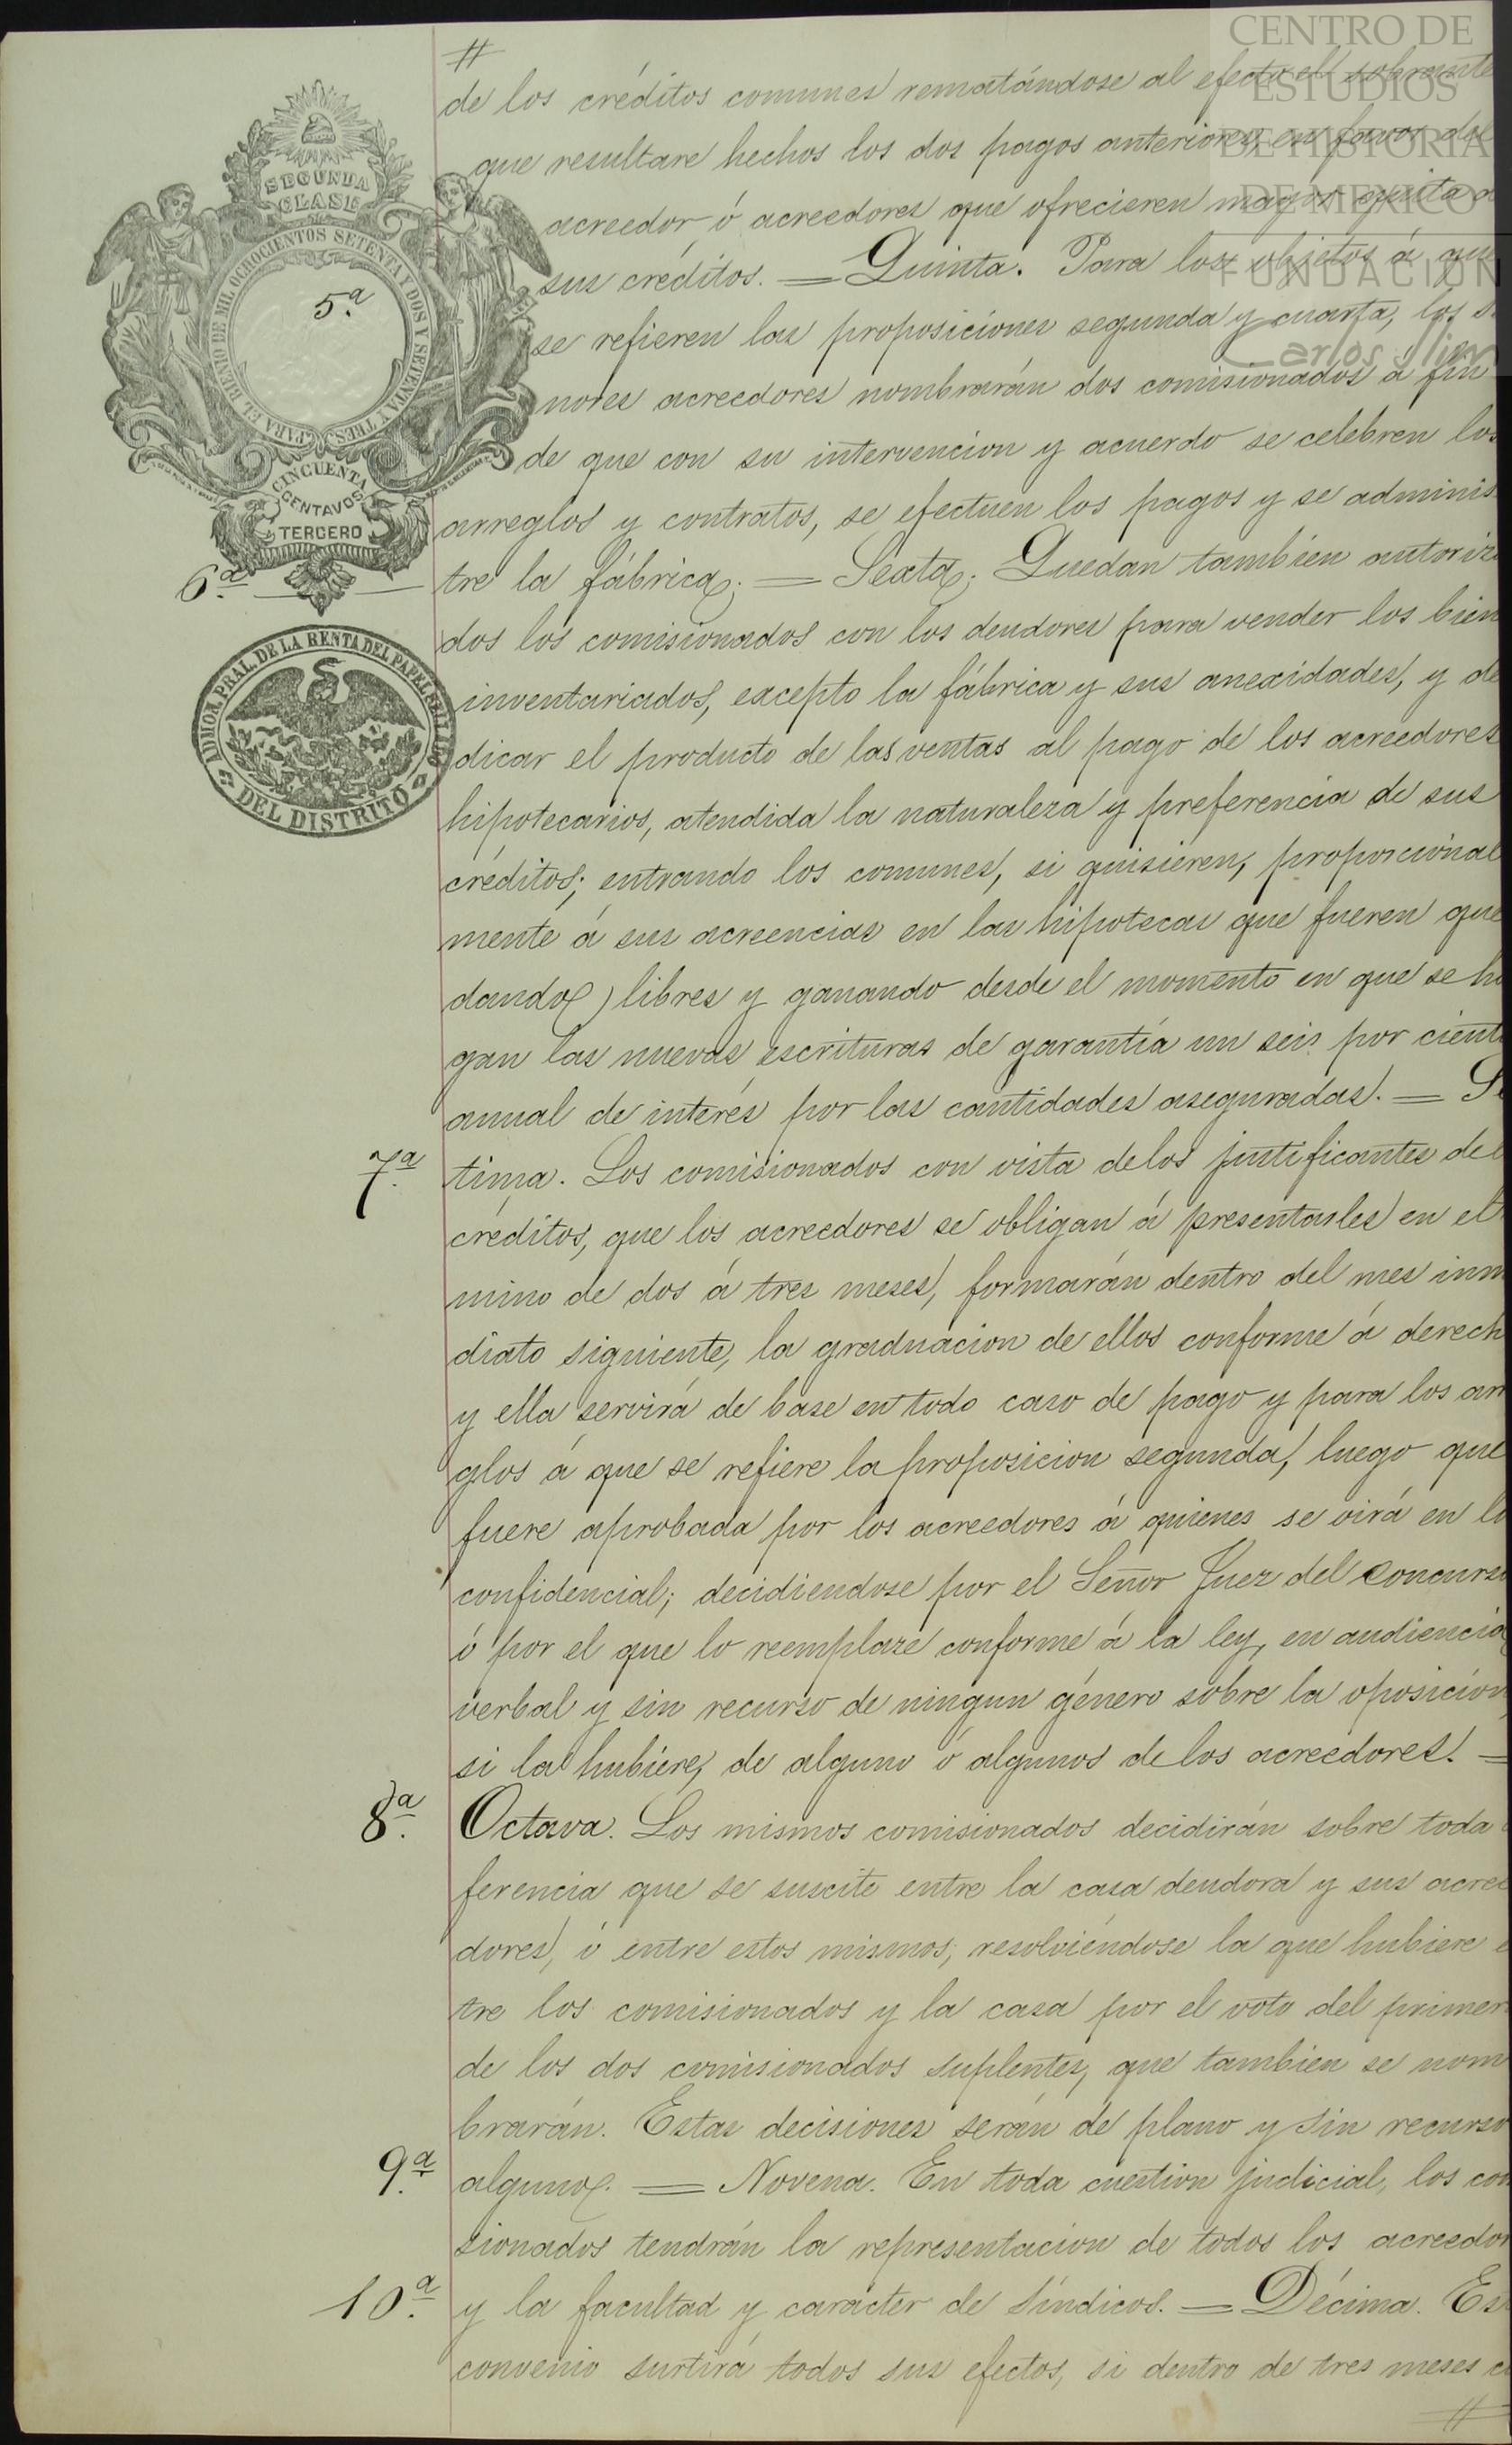 CENTRO DE
ESTUDIOS
DE HISTORIA
DE MEXICO
FUNDACION
Carlos Slim
SEGUNDA
CLASE
PARA EL BIENIO DE MIL OCHOCIENTOS SETENTA Y DOS Y SETENTA Y TRES
5.ª
CINCUENTA
CENTAVOS
TERCERO
6.ª
ADMON. PRAL. DE LA RENTA DEL PAPEL SELLADO
DEL DISTRITO
//
de los créditos comunes rematándose al efecto el sobrante
que resultare hechos los dos pagos anteriores, en favor del
acreedor ó acreedores que ofrecieren mayor quita a
sus créditos. = Quinta. Para los objetos á que
se refieren las proposiciones segunda y cuarta, los s
nores acreedores nombrarán dos comisionados á fin
de que con su intervencion y acuerdo se celebren los
arreglos y contratos, se efectuen los pagos y se adminis
tre la fábrica. = Sexta. Quedan tambien autoriza
dos los comisionados con los deudores para vender los bien
inventariados, excepto la fábrica y sus anexidades, y de
dicar el producto de las ventas al pago de los acreedores
hipotecarios, atendida la naturaleza y preferencia de sus
créditos; entrando los comunes, si quisieren, proporcional
mente á sus acreencias en las hipotecas que fueren que
dando libres y ganando desde el momento en que se ha
gan las nuevas escrituras de garantía un seis por cient
anual de interés por las cantidades aseguradas. = Sé
7.ª tima. Los comisionados con vista de los justificantes de
créditos, que los acreedores se obligan á presentarles en el
mino de dos á tres meses, formarán dentro del mes inm
diato siguiente, la graduacion de ellos conforme á derech
y ella servirá de base en todo caso de pago y para los arr
glos á que se refiere la proposicion segunda, luego que
fuere aprobada por los acreedores á quienes se oirá en lo
confidencial; decidiendose por el Señor Juez del concurso
ó por el que lo reemplaze conforme á la ley, en audiencia
verbal y sin recurso de ningun género sobre la oposicion,
si la hubiere, de alguno ó algunos de los acreedores. =
8.ª Octava. Los mismos comisionados decidirán sobre toda
ferencia que se suscite entre la casa deudora y sus acree
dores, ó entre estos mismos, resolviéndose la que hubiere e
tre los comisionados y la casa por el voto del primer
de los dos comisionados suplentes, que tambien se nom
brarán. Estas decisiones serán de plano y sin recurso
9.ª alguno. = Novena. En toda cuestion judicial, los com
sionados tendrán la representacion de todos los acreedor
10.ª y la facultad y carácter de Síndicos. = Décima. Es
convenio surtirá todos sus efectos, si dentro de tres meses c
//